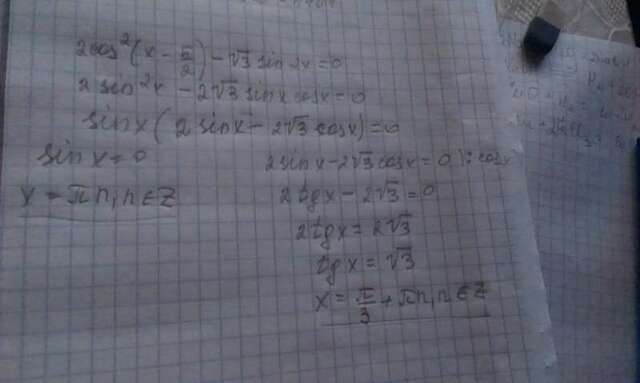 2cos²(x - π/2) - √3 sin 2x = 0
2 sin²x - 2√3 sinx cosx = 0
sinx(2 sinx - 2√3 cosx) = 0
sin x = 0
x = πn, n ∈ Z
2sinx - 2√3 cosx = 0 | : cosx
2tgx - 2√3 = 0
2tgx = 2√3
tgx = √3
x = π/3 + πn, n ∈ Z